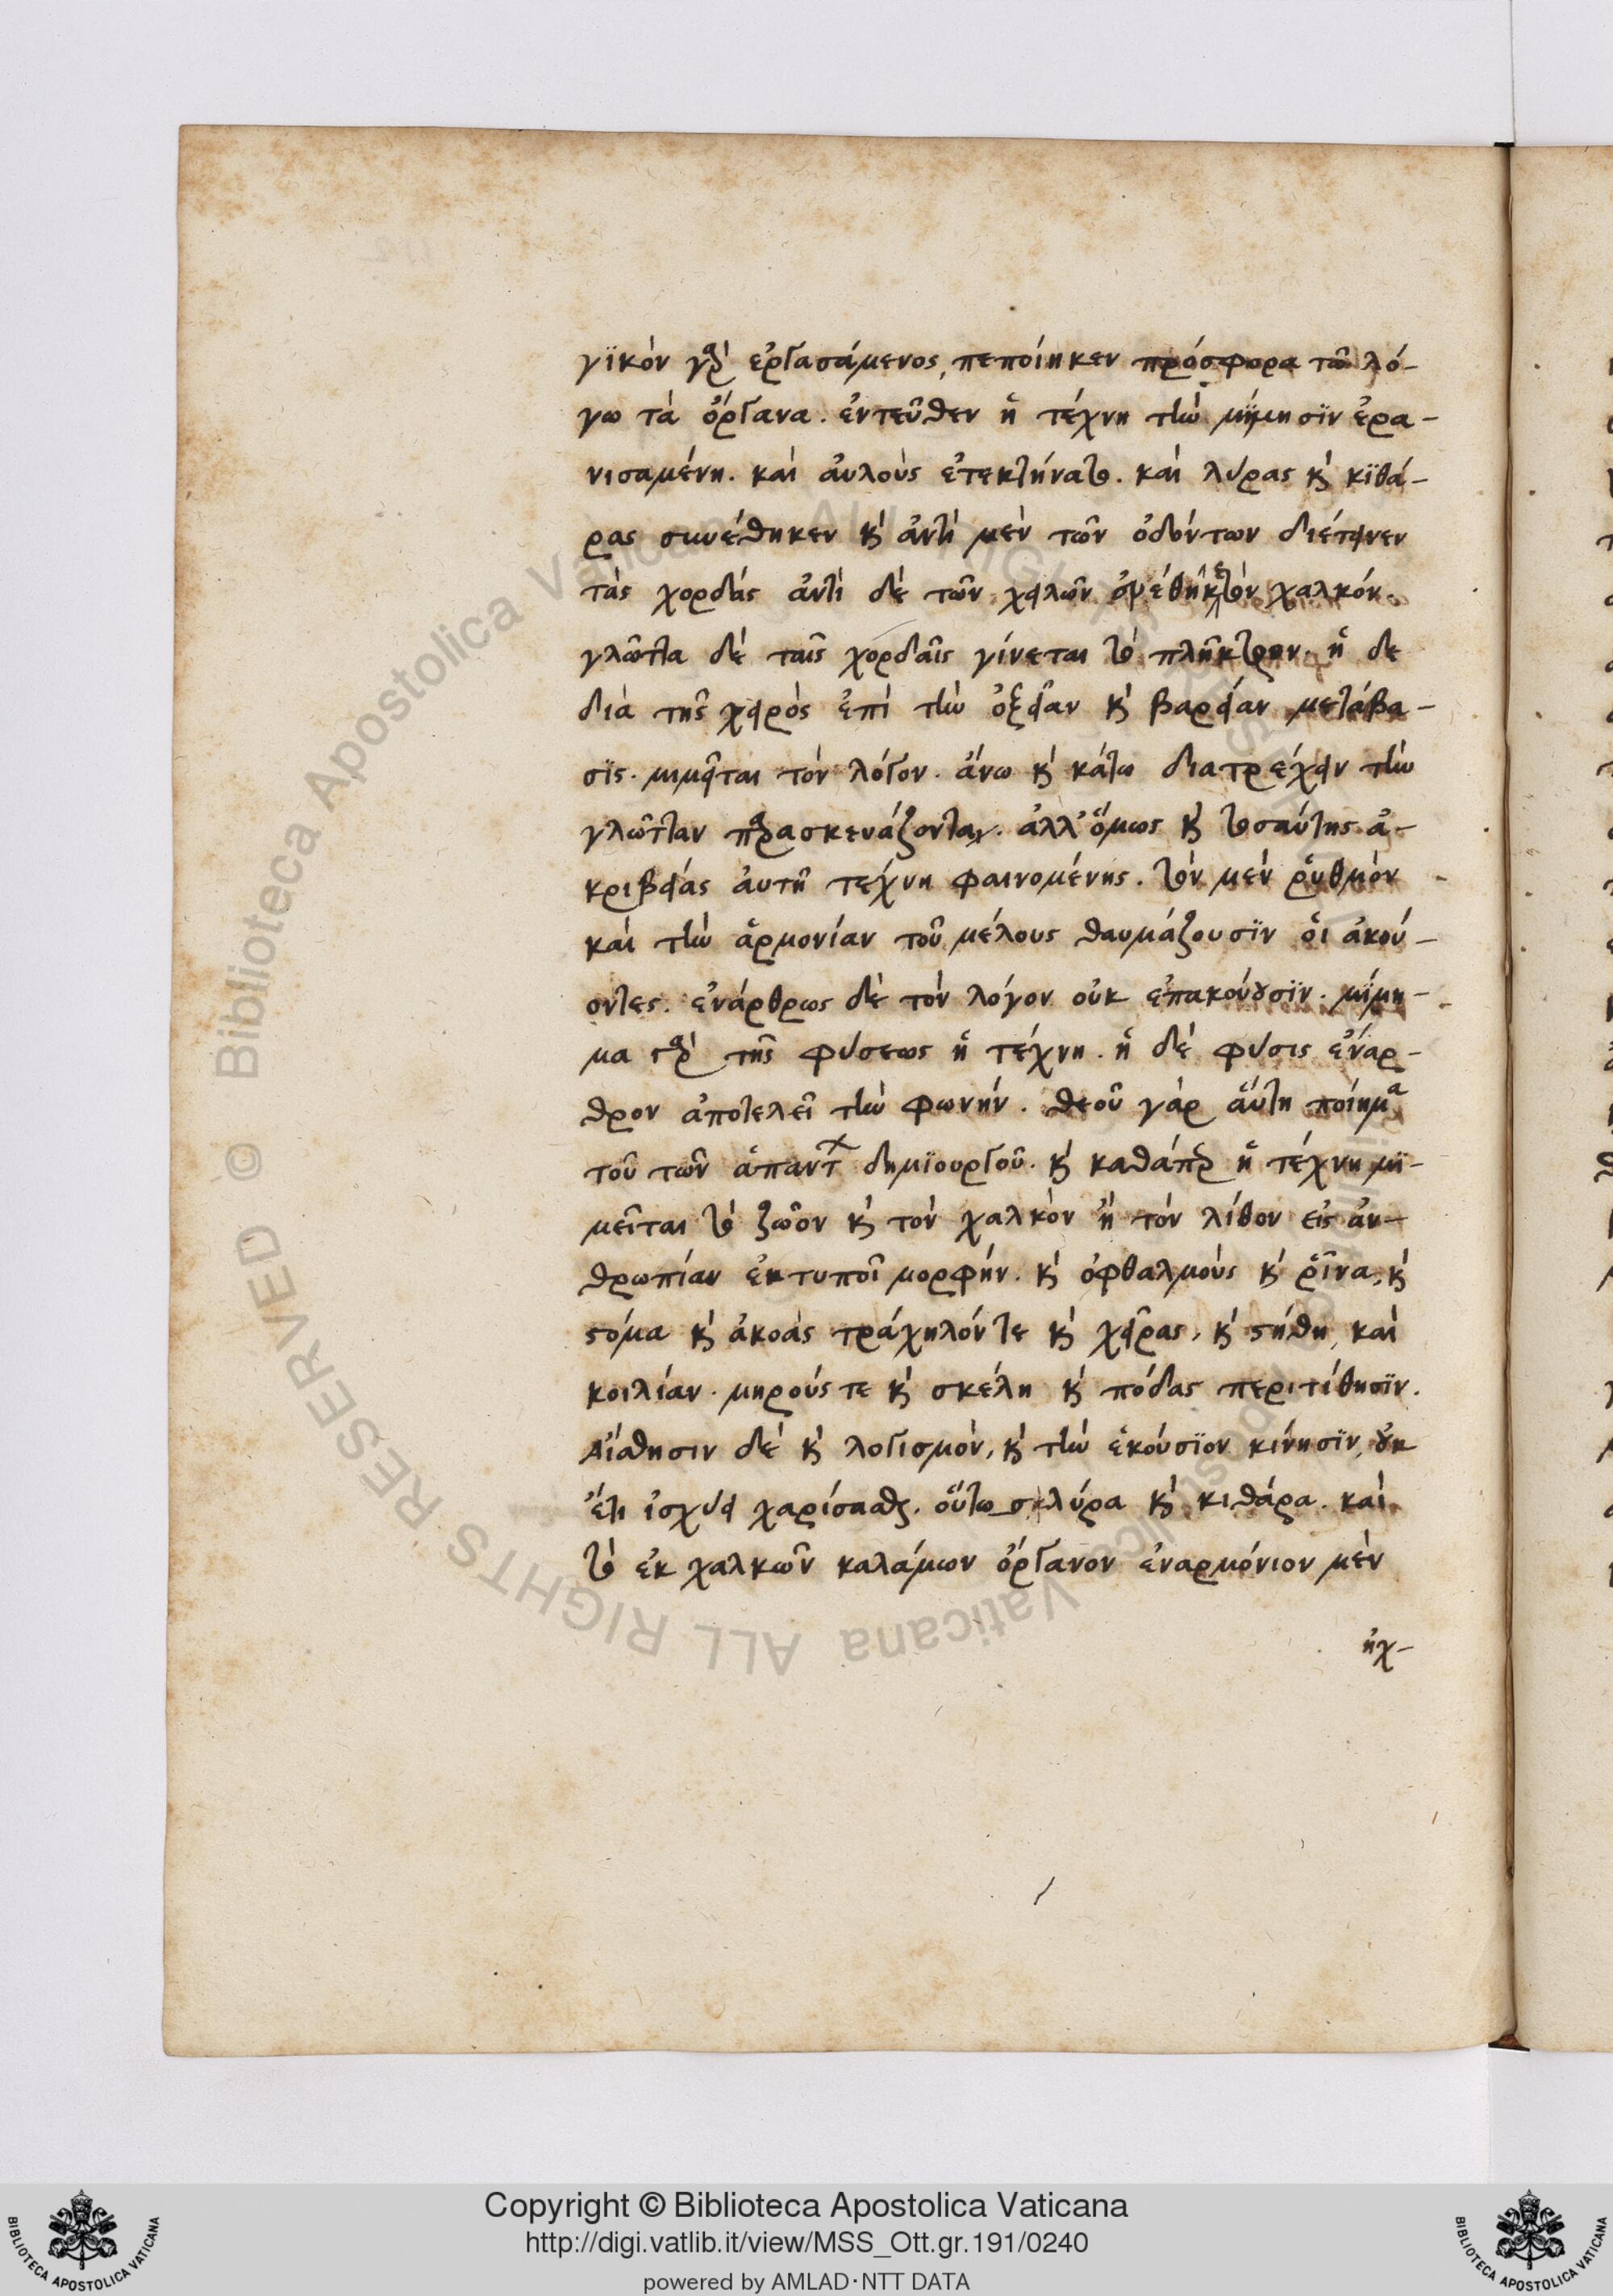 γϊκὸν γὰρ ἐργασάμενος, πεποίηκεν πρόσφορα τῶ λό-
γω τὰ ὄργανα. ἐντεῦθεν ἡ τέχνη τὴν μίμησϊν ἐρα-
νισαμένη. καὶ αὐλοὺς ἐτεκτήνατο. καὶ λύρας κ̀ κϊθά-
ρας συνέθηκεν κ̀ ἀντὶ μὲν τῶν ὀδόντων διέτεινεν
τὰς χορδάς ἀντὶ δὲ τῶν χειλῶν τὸν χαλκόν.
γλῶττα δὲ ταῖς χορδαῖς γίνεται τὸ πλῆκτρον. ἡ δε
διὰ τῆς χειρὸς ἐπὶ τὴν ὀξεῖαν κ̀ βαρεῖαν μετάβα-
σϊς. μιμεῖται τὸν λόγον. ἄνω κ̀ κάτω διατρέχειν τὴν
γλῶτταν παρασκευάζοντα. ἀλλ' ὅμως κ̀ τοσαύτης ἀ-
κριβείας ἀυτῆ τέχνη φαινομένης. τὸν μὲν ῥυθμὸν
καὶ τὴν ἁρμονίαν τοῦ μέλους θαυμάζουσϊν ὁι ἀκού-
οντες. ἐνάρθρως δὲ τὸν λόγον οὐκ ἐπακούουσϊν. μίμη-
μα γὰρ τῆς φύσεως ἡ τέχνη. ἡ δὲ φύσις ἔναρ-
θρον ἀποτελεῖ τὴν φωνήν. θεοῦ γάρ ἅυτη ποίημα
τοῦ τῶν ἁπάντων δημϊουργοῦ. κ̀ καθάπερ ἡ τέχνη μϊ-
μεῖται τὸ ζῶον κ̀ τὸν χαλκὸν ἢ τὸν λίθον εἰς ἀν-
θρωπίαν ἐκτυποῖ μορφήν. κ̀ ὀφθαλμούς κ̀ ῥῖνα, κ̀
στόμα κ̀ ἀκοὰς τράχηλόν τε κ̀ χεῖρας, κ̀ στήθη, καὶ
κοιλίαν. μηρούς τε κ̀ σκέλη κ̀ πόδας περιτίθησϊν.
Αἴσθησιν δὲ κ̀ λογισμὸν, κ̀ τὴν ἑκούσϊον κίνησϊν, οὐκ
ἔτι ἰσχύει χαρίσασθαι. οὕτω λύρα κ̀ κιθάρα. καὶ
τὸ ἐκ χαλκῶν καλάμων ὄργανον ἐναρμόνιον μὲν
ἠχ-
Biblioteca Apostolica Vaticana ALL RIGHTS RESERVED ©
Copyright © Biblioteca Apostolica Vaticana
http://digi.vatlib.it/view/MSS_Ott.gr.191/0240
powered by AMLAD·NTT DATA
BIBLIOTECA APOSTOLICA VATICANA
BIBLIOTECA APOSTOLICA VATICANA